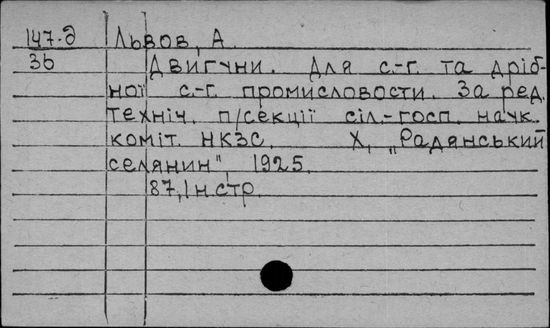 147-д Львов, А.
36 Двигуни. Для с.-г. та дріб-
ної с.-г. промисловости. За ред.
техніч. п/секції сіл.-госп. наук.
коміт. НКЗС. Х, „Радянський
селянин", 1925.
87,1 н.стр.